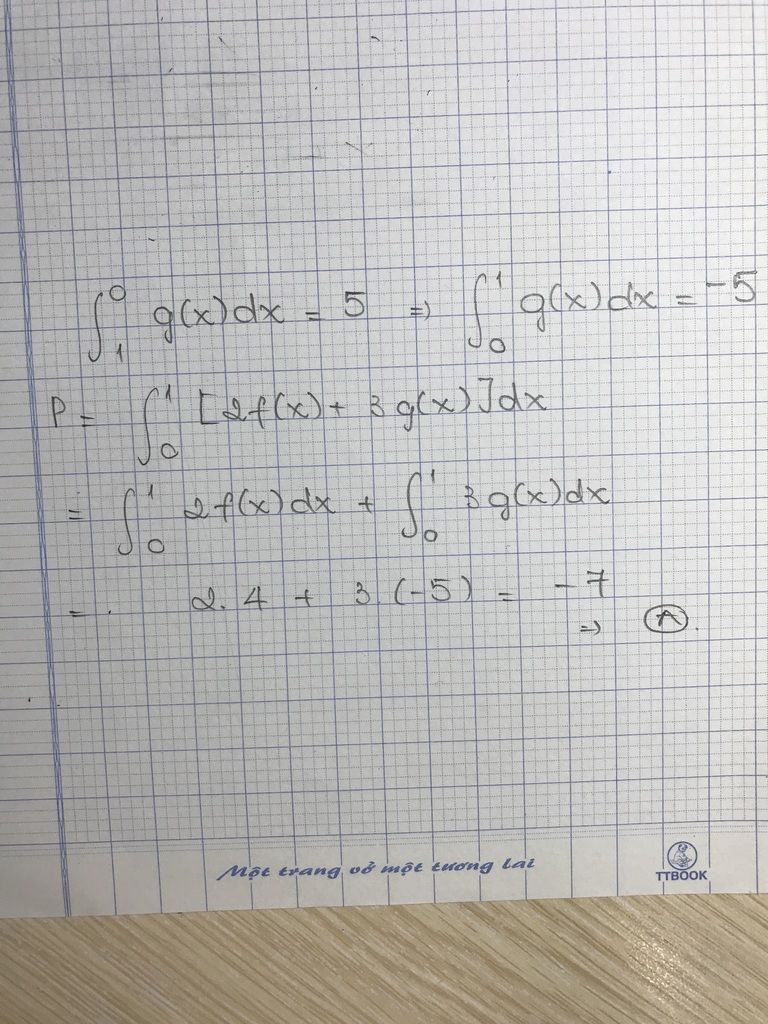 ∫₁⁰ g(x)dx = 5 => ∫₀¹ g(x)dx = -5
P = ∫₀¹ [2f(x) + 3g(x)]dx
= ∫₀¹ 2f(x)dx + ∫₀¹ 3g(x)dx
= . 2.4 + 3.(-5) = -7
=> A.
Một trang vở một tương lai
TTBOOK